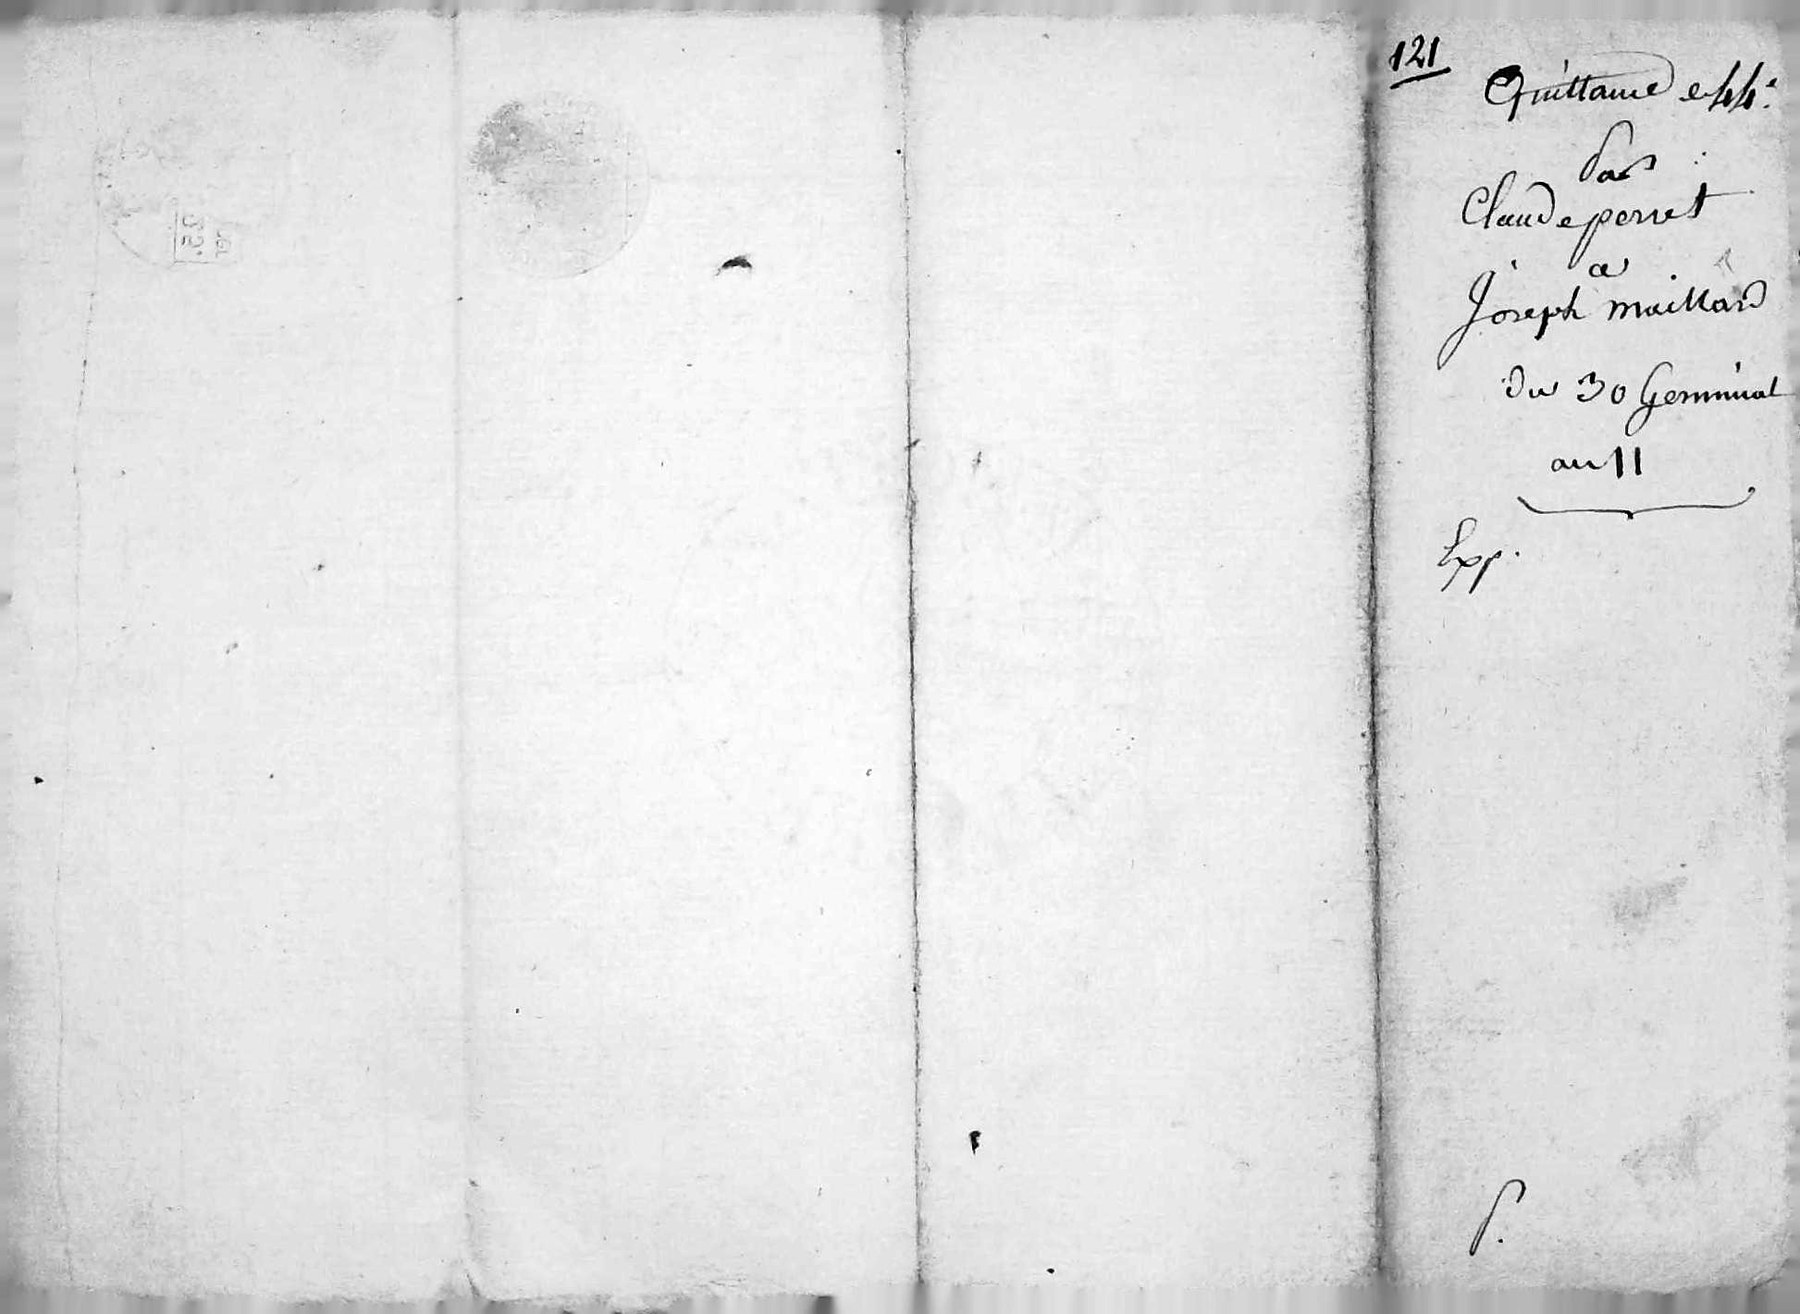 121
Quittance
Par
Claude perret
a
Joseph maillard
Du 30 Germinal
an 11
Exp.
P.